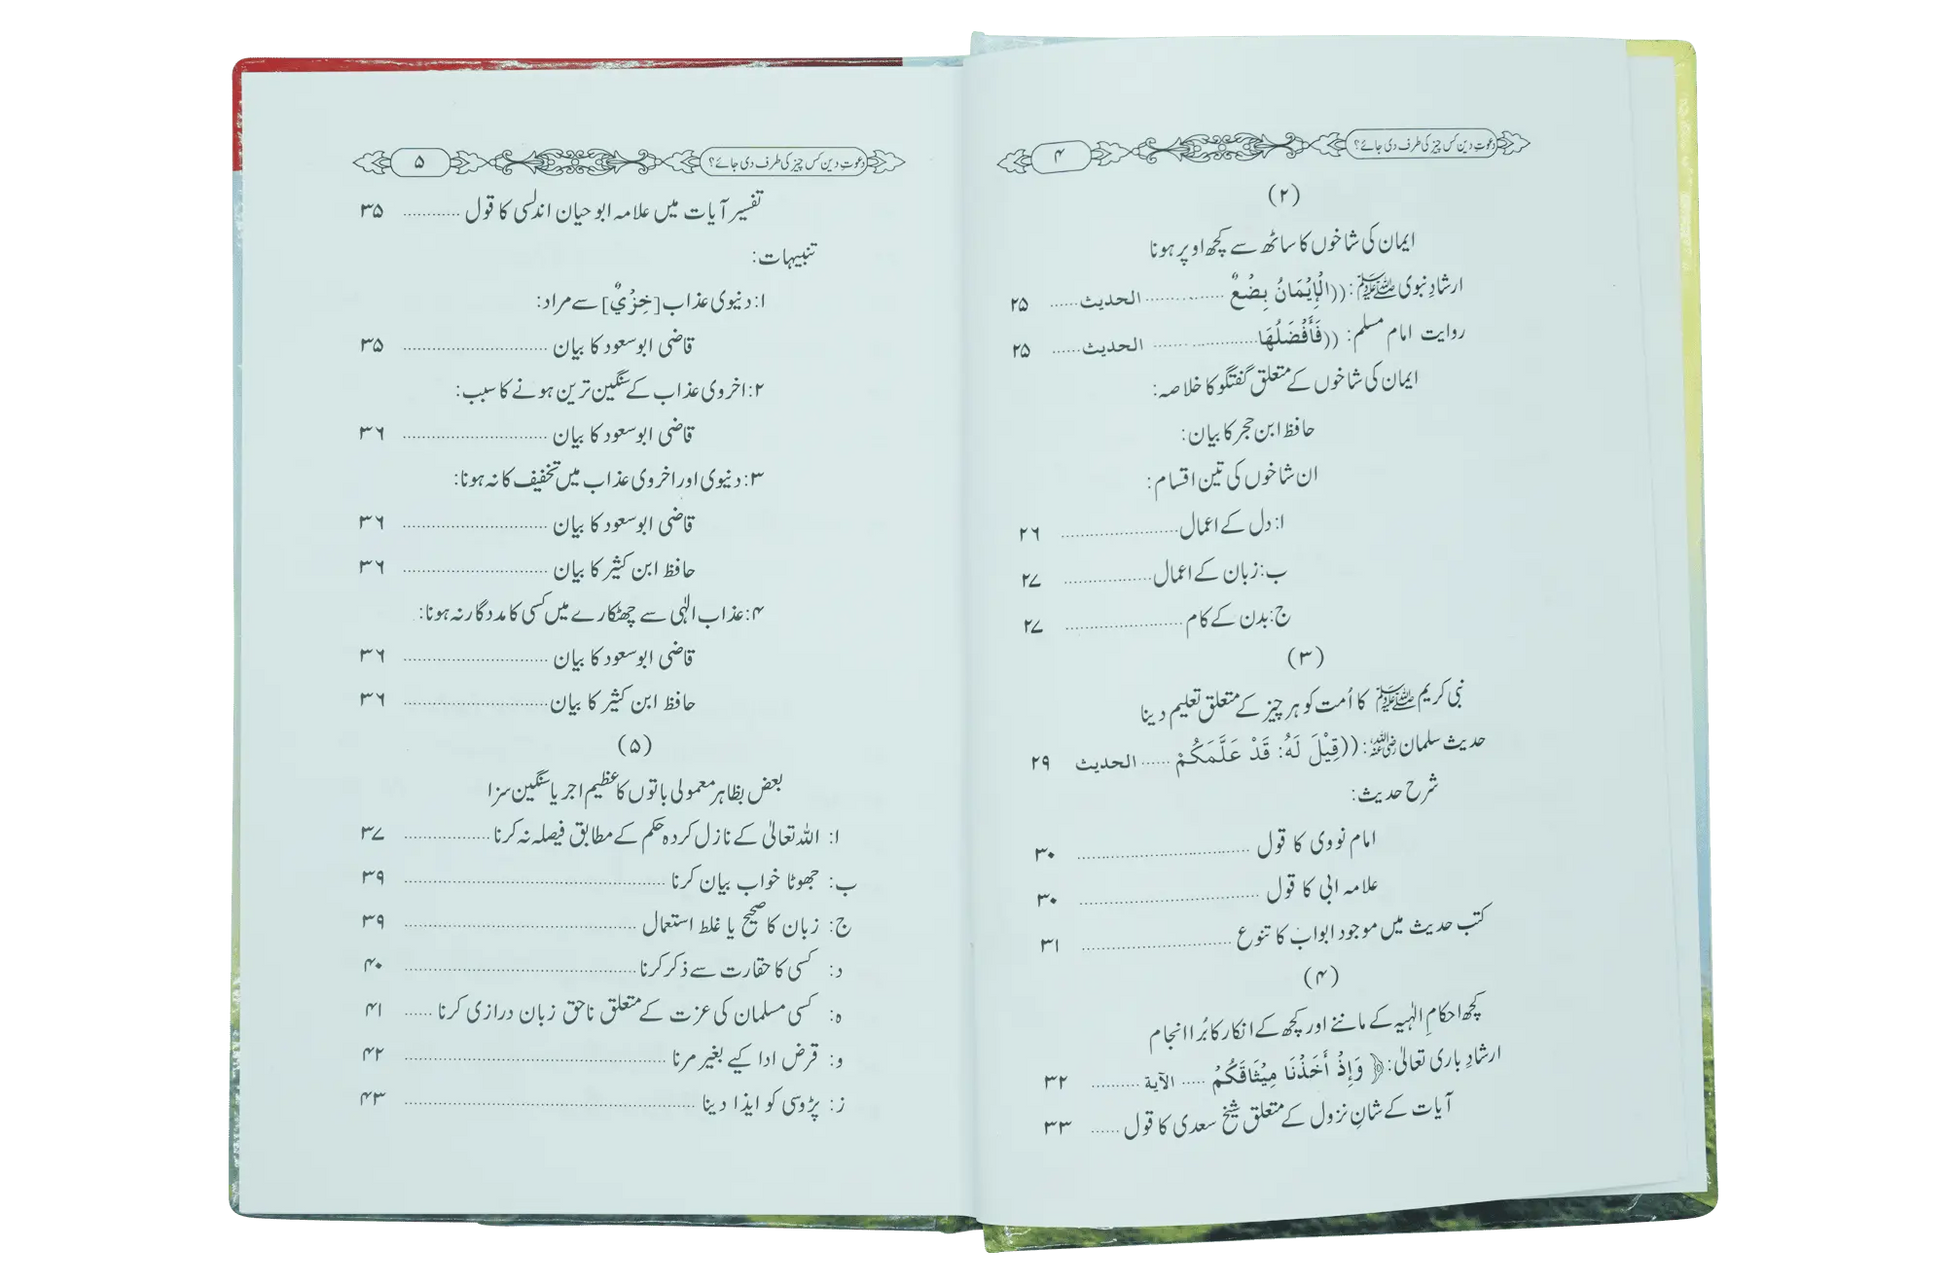 ۴ دعوتِ دین کس چیز کی طرف دی جائے؟
(۲)
ایمان کی شاخوں کا ساٹھ سے کچھ اوپر ہونا
ارشادِ نبوی ﷺ: ((الْإِيْمَانُ بِضْعٌ ............ الحديث ...... ۲۵
روایت امام مسلم: ((فَأَفْضَلُهَا .................. الحديث ...... ۲۵
ایمان کی شاخوں کے متعلق گفتگو کا خلاصہ:
حافظ ابن حجر کا بیان:
ان شاخوں کی تین اقسام:
ا: دل کے اعمال ...................... ۲۶
ب: زبان کے اعمال .................. ۲۷
ج: بدن کے کام ...................... ۲۷
(۳)
نبی کریم ﷺ کا اُمت کو ہر چیز کے متعلق تعلیم دینا
حدیث سلمان رضی اللہ عنہ: ((قِيْلَ لَهُ: قَدْ عَلَّمَكُمْ ...... الحديث ۲۹
شرح حدیث:
امام نووی کا قول .................................. ۳۰
علامہ ابی کا قول .................................. ۳۰
کتب حدیث میں موجود ابواب کا تنوع ............................ ۳۱
(۴)
کچھ احکامِ الٰہیہ کے ماننے اور کچھ کے انکار کا بُرا انجام
ارشادِ باری تعالیٰ: ﴿وَإِذْ أَخَذْنَا مِيْثَاقَكُمْ ..... الآية .......... ۳۲
آیات کے شانِ نزول کے متعلق شیخ سعدی کا قول ...... ۳۳
۵ دعوتِ دین کس چیز کی طرف دی جائے؟
تفسیر آیات میں علامہ ابو حیان اندلسی کا قول ............ ۳۵
تنبیہات:
ا: دنیوی عذاب [خِزْيٌ] سے مراد:
قاضی ابو سعود کا بیان .............................. ۳۵
۲: اخروی عذاب کے سنگین ترین ہونے کا سبب:
قاضی ابو سعود کا بیان .............................. ۳۶
۳: دنیوی اور اخروی عذاب میں تخفیف کا نہ ہونا:
قاضی ابو سعود کا بیان .............................. ۳۶
حافظ ابن کثیر کا بیان .............................. ۳۶
۴: عذاب الٰہی سے چھٹکارے میں کسی کا مددگار نہ ہونا:
قاضی ابو سعود کا بیان .............................. ۳۶
حافظ ابن کثیر کا بیان .............................. ۳۶
(۵)
بعض بظاہر معمولی باتوں کا عظیم اجر یا سنگین سزا
ا: اللہ تعالیٰ کے نازل کردہ حکم کے مطابق فیصلہ نہ کرنا .................. ۳۷
ب: جھوٹا خواب بیان کرنا .................................................... ۳۹
ج: زبان کا صحیح یا غلط استعمال .............................................. ۳۹
د: کسی کا حقارت سے ذکر کرنا .............................................. ۴۰
ہ: کسی مسلمان کی عزت کے متعلق ناحق زبان درازی کرنا ...... ۴۱
و: قرض ادا کیے بغیر مرنا .................................................... ۴۲
ز: پڑوسی کو ایذا دینا .......................................................... ۴۳